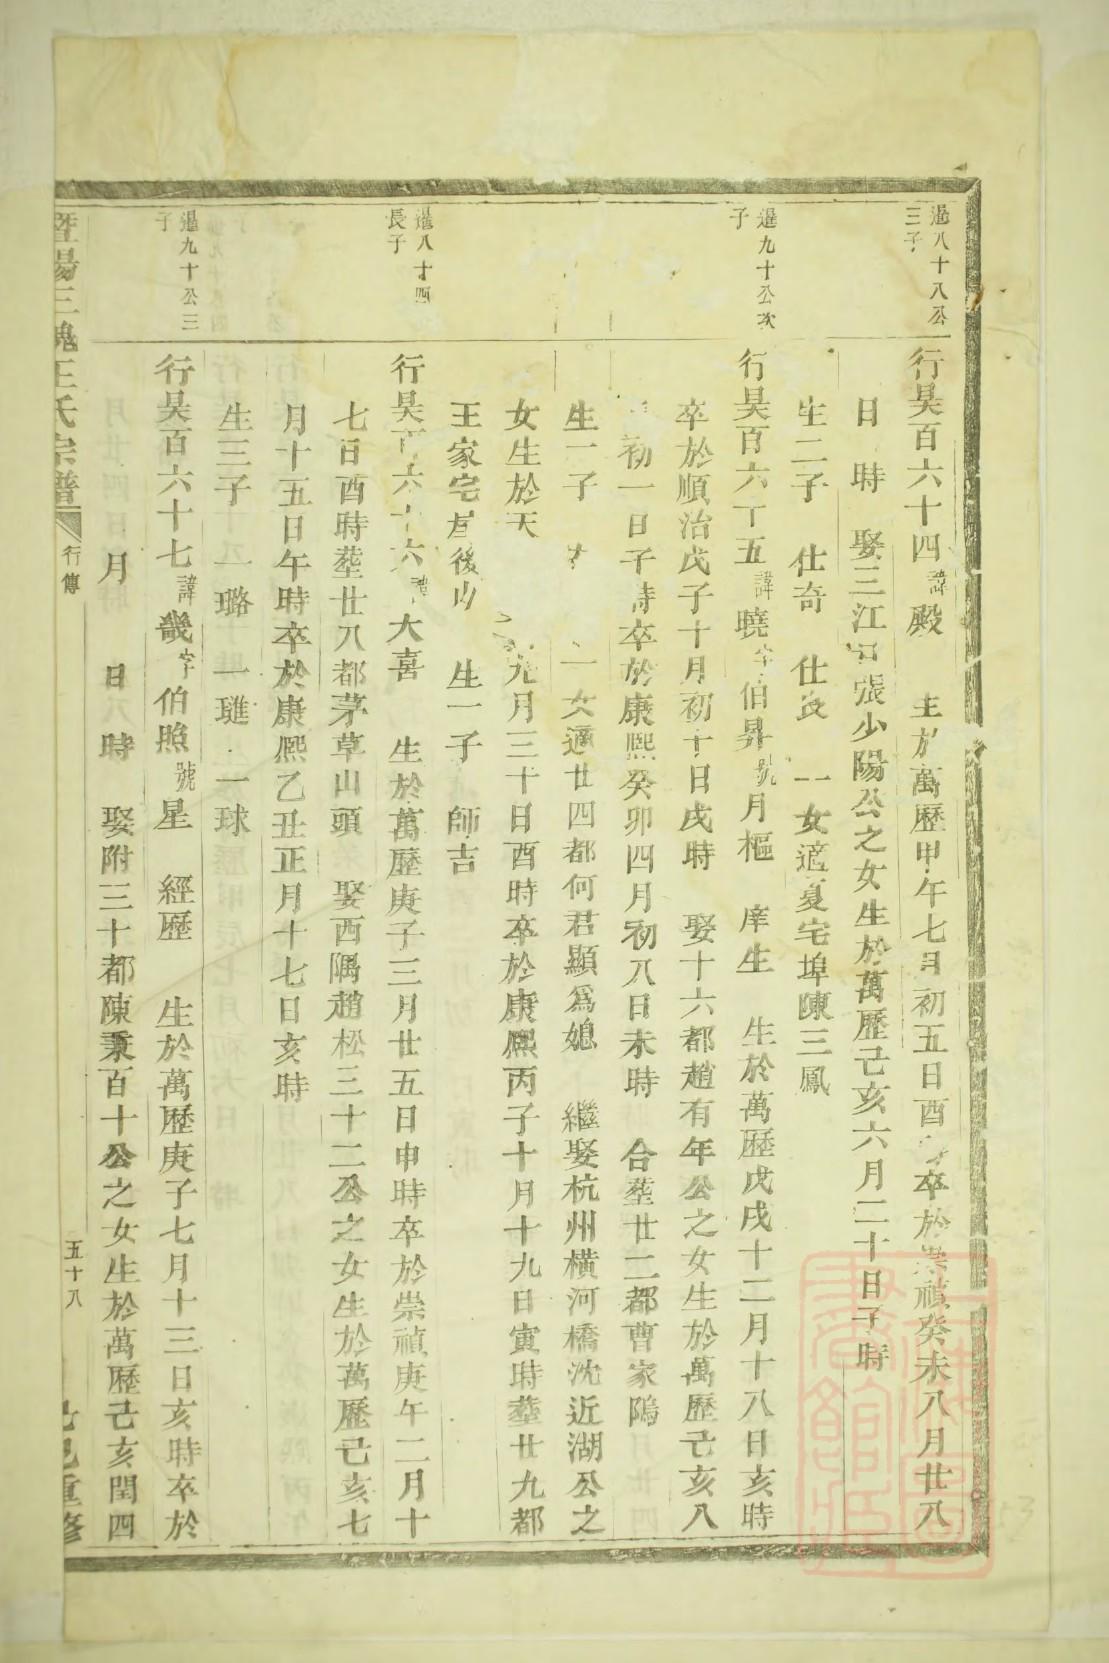 暹八十八公
三子
行昊百六十四諱殿 生於萬歷甲午七月初五日酉 卒於崇禎癸未八月廿八
日 時 娶三江 張少陽公之女生於萬歷己亥六月二十日子時
生二子 仕奇 仕 一女適夏宅埠陳三鳳
暹九十公次
子
行昊百六十五諱曉字伯昇號月樞 庠生 生於萬歷戊戌十二月十八日亥時
卒於順治戊子十月初十日戌時 娶十六都趙有年公之女生於萬歷己亥八
初一日子時卒於康熙癸卯四月初八日未時 合塟廿二都曹家隖
生一子 一女適廿四都何君顯爲媳 繼娶杭州橫河橋沈近湖公之
女生於天 元月三十日酉時卒於康熙丙子十月十九日寅時塟廿九都
王家宅 後山 生一子 師吉
暹八十四
長子
行昊百六十六諱大喜 生於萬歷庚子三月廿五日申時卒於崇禎庚午二月十
七日酉時塟廿八都茅草山頭 娶西隅趙松三十二公之女生於萬歷己亥七
月十五日午時卒於康熙乙丑正月十七日亥時
生三子 一璐 一璡 一球
暹九十公三
子
行昊百六十七諱畿字伯照號星 經歷 生於萬歷庚子七月十三日亥時卒於
月 日 時 娶附三十都陳秉百十公之女生於萬歷己亥閏四
暨陽三槐王氏宗譜 行傳 五十八 己巳重修